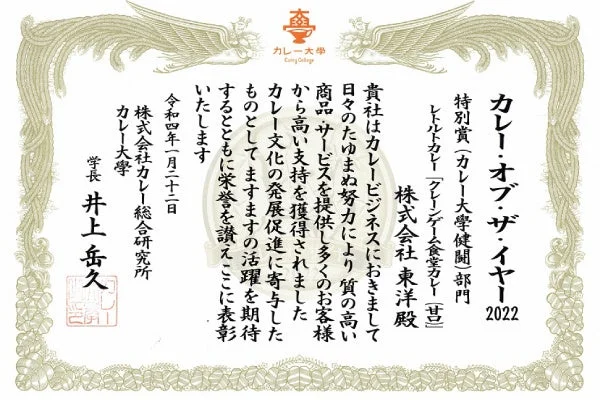 カレー大學
Curry College
カレー・オブ・ザ・イヤー2022
特別賞(カレー大學健闘)部門
レトルトカレー「クレーンゲーム食堂カレー(甘口)」
株式会社 東洋殿
貴社はカレービジネスにおきまして
日々のたゆまぬ努力により質の高い
商品・サービスを提供し多くのお客様
から高い支持を獲得されました
カレー文化の発展促進に寄与した
ものとしてますますの活躍を期待
するとともに栄誉を讃えここに表彰
いたします
令和四年一月二十二日
株式会社カレー総合研究所
カレー大學
学長 井上岳久